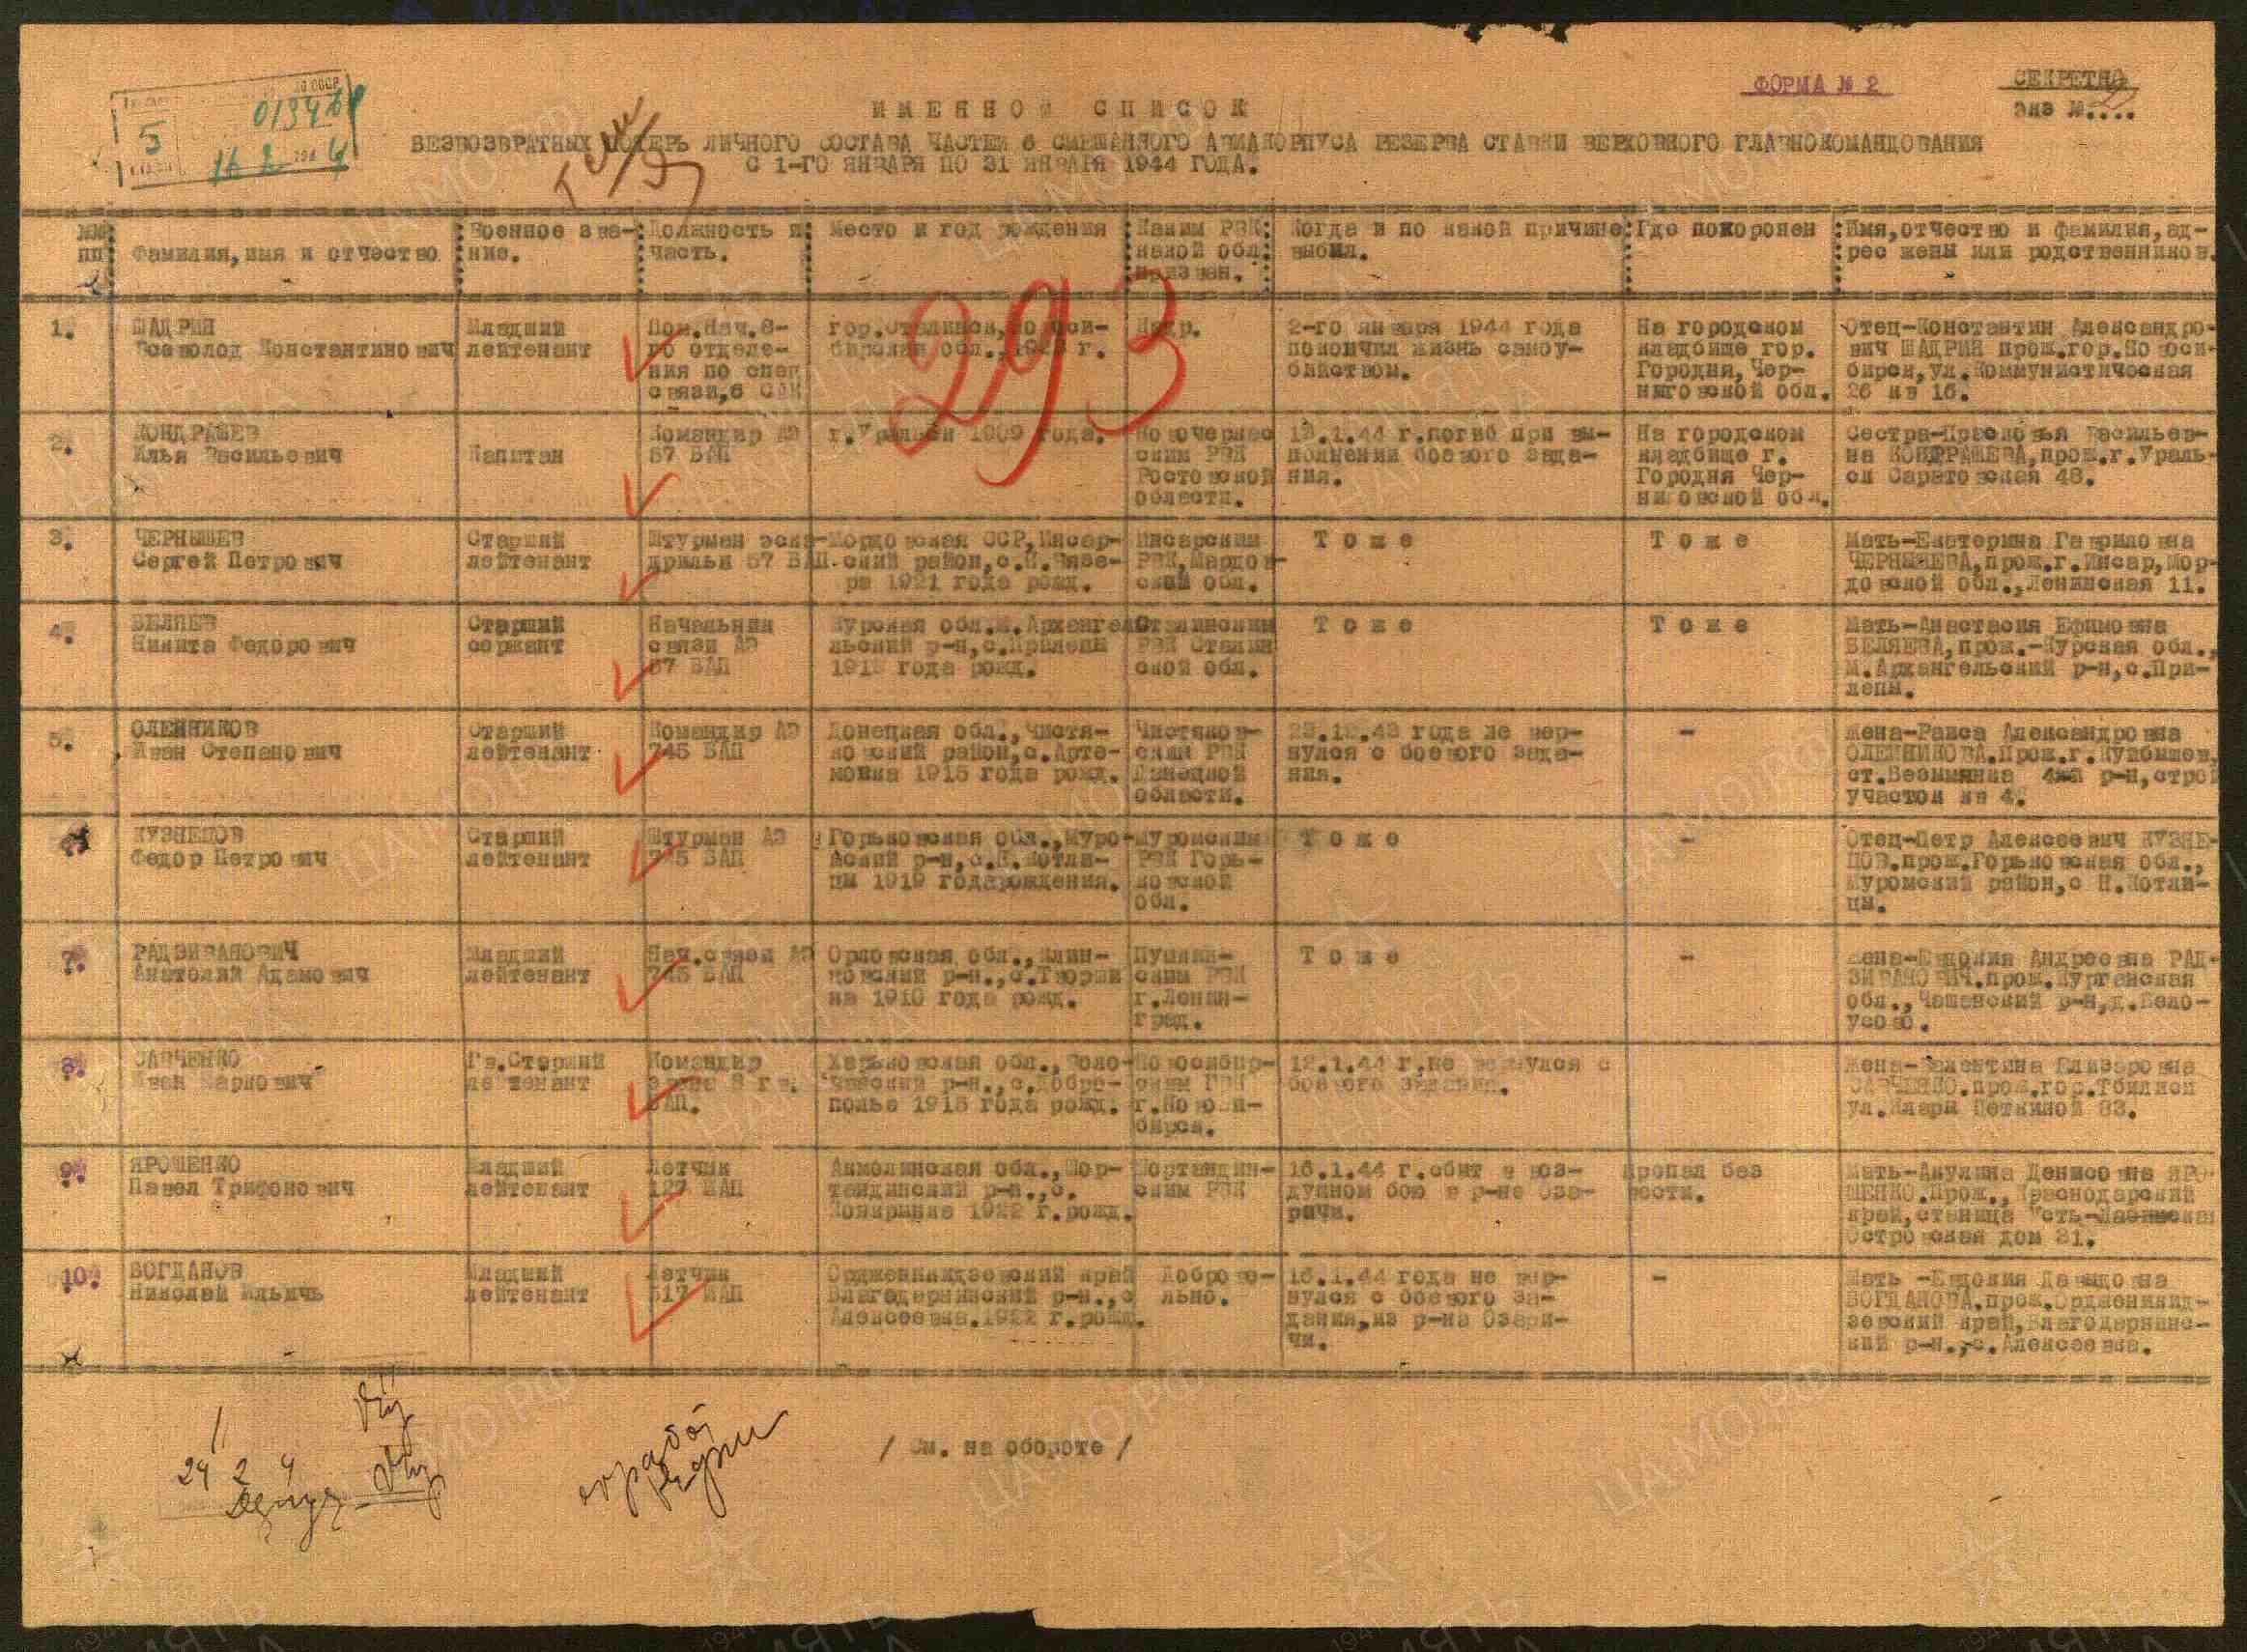 ФОРМА № 2
СЕКРЕТНО
экз №
5
01347
16 2 1944
ИМЕННОЙ СПИСОК
БЕЗВОЗВРАТНЫХ ПОТЕРЬ ЛИЧНОГО СОСТАВА ЧАСТЕЙ 6 СМЕШАННОГО АВИАКОРПУСА РЕЗЕРВА СТАВКИ ВЕРХОВНОГО ГЛАВНОКОМАНДОВАНИЯ
С 1-ГО ЯНВАРЯ ПО 31 ЯНВАРЯ 1944 ГОДА.
293
№№ пп
Фамилия,имя и отчество
Военное зва-
ние.
Должность и
часть.
Место и год рождения
Каким РВК
какой обл.
призван.
Когда и по какой причине
выбыл.
Где похоронен
Имя,отчество и фамилия,ад-
рес жены или родственников.
1.
ШАДРИН
Всеволод Константинович
Младший
лейтенант
Пом.Нач.8-
го отделе-
ния по спец
связи,6 САК
гор.Сталинск,Новоси-
бирская обл.,
Кадр.
2-го января 1944 года
покончил жизнь самоу-
бийством.
На городском
кладбище гор.
Городня, Чер-
ниговской обл.
Отец-Константин Александро-
вич ШАДРИН прож.гор.Новоси-
бирск,ул.Коммунистическая
26 кв 16.
2.
КОНДРАШЕВ
Илья Васильевич
Капитан
Командир АЭ
57 БАП
г.Уральск 1909 года.
Новочеркас
ским РВК
Ростовской
области.
13.1.44 г.погиб при вы-
полнении боевого зада-
ния.
На городском
кладбище г.
Городня Чер-
ниговской обл.
Сестра-Прасковья Васильев-
на КОНДРАШЕВА,прож.г.Ураль-
ск Саратовская 48.
3.
ЧЕРНЫШЕВ
Сергей Петрович
Старший
лейтенант
Штурман эска-
дрильи 57 БАП.
Мордовская ССР,Инсар-
ский район,с.
ра 1921 года рожд.
Инсарским
РВК,Мордов-
ской обл.
Тоже
Тоже
Мать-Екатерина Гавриловна
ЧЕРНЫШЕВА,прож.г.Инсар,Мор-
довской обл.,Ленинская 11.
4.
БЕЛЯЕВ
Никита Федорович
Старший
сержант
Начальник
связи АЭ
57 БАП
Курская обл.М.Арханге
льский р-н,с.Прилепы
года рожд.
Сталинским
РВК Сталин
ской обл.
Тоже
Тоже
Мать-Анастасия Ефимовна
БЕЛЯЕВА,прож.-Курская обл.,
М.Архангельский р-н,с.При-
лепы.
5.
ОЛЕЙНИКОВ
Иван Степанович
Старший
лейтенант
Командир АЭ
745 БАП
Донецкая обл.,Чистя-
ковский район,с.Арте-
мовка 1915 года рожд.
Чистяков-
ским РВК
Донецкой
области.
23.12.43 года не вер-
нулся с боевого зада-
ния.
-
Жена-Раиса Александровна
ОЛЕЙНИКОВА.Прож.г.Куйбышев,
ст.Безымянка р-н,строй
участок кв 4.
КУЗНЕЦОВ
Федор Петрович
Старший
лейтенант
Штурман АЭ
745 БАП
Горьковская обл.,Муро-
мский р-н,с.Н.Котли-
цы 1919 года рождения.
Муромским
РВК Горь-
ковской
обл.
Тоже
-
Отец-Петр Алексеевич КУЗНЕ-
ЦОВ.прож.Горьковская обл.,
Муромский район,с Н.Котли-
цы.
7.
РАДЗИВАНОВИЧ
Анатолий Адамович
Младший
лейтенант
Нач.связи АЭ
745 БАП
Орловская обл.,Клин-
цовский р-н.,с.Творши
на 1910 года рожд.
Пушкин-
ским РВК
г.Ленин-
град.
Тоже
-
Жена-Евдокия Андреевна РАД-
ЗИВАНОВИЧ.прож.Курганская
обл.,Чашинский р-н,д.Бело-
усово.
8.
САВЧЕНКО
Иван Карпович
Гв.Старший
лейтенант
Командир
звена 8 гв.
БАП.
Харьковская обл.,Воло-
чанский р-н.,с.Добро-
полье 1915 года рожд.
Новосибир-
ским РВК
г.Новоси-
бирск.
12.1.44 г.не вернулся с
боевого задания.
Жена-Валентина Елизаровна
САВЧЕНКО.прож.гор.Тбилиси
ул.Клары Цеткиной 83.
9.
ЯРОШЕНКО
Павел Трифонович
Младший
лейтенант
Летчик
ИАП
Акмолинская обл.,Шор-
тандинский р-н.,с.
1922 г.рожд.
Шортандин-
ским РВК
16.1.44 г.сбит в воз-
душном бою в р-не Оза-
ричи.
Пропал без
вести.
Мать-Акулина Денисовна ЯРО-
ШЕНКО.Прож.,Краснодарский
край,станица Усть-Лабинская
Островская дом 31.
10.
БОГДАНОВ
Николай Ильичь
Младший
лейтенант
Летчик
517 ИАП
Орджоникидзевский край
Благодарненский р-н.,с
Алексеевка.1922 г.рожд.
Доброво-
льно.
16.1.44 года не вер-
нулся с боевого за-
дания,из р-на Озари-
чи.
-
Мать -Евдокия Давыдовна
БОГДАНОВА.прож.Орджоникид-
зевский край,Благодарнинс-
кий р-н.,с.Алексеевка.
/ См. на обороте /
24 2 4